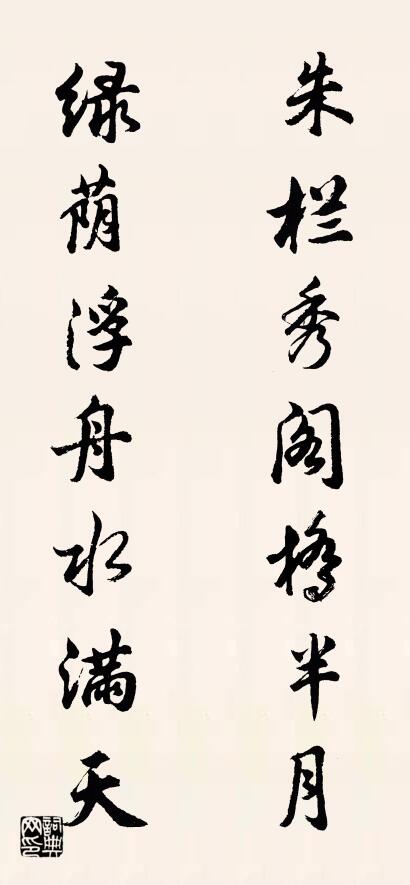 朱栏秀阁桥半月
绿荫浮舟水满天
词典网印